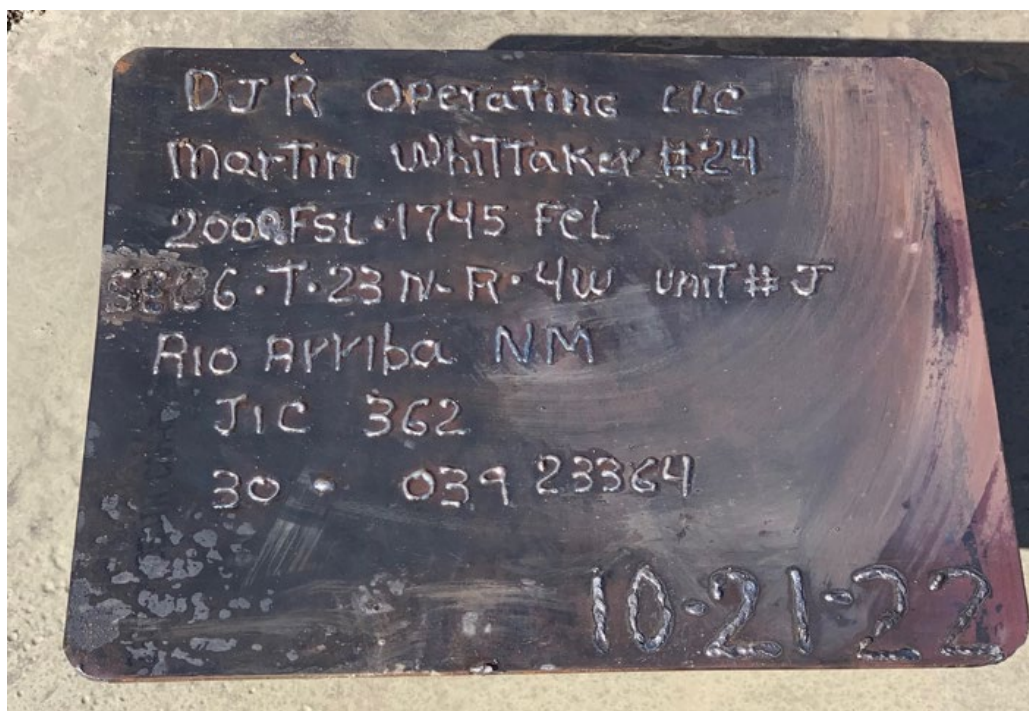 DJR Operating LLC
Martin Whittaker #24
FSL·1745 Fel
6·T·23 N-R·4W unit # J
Rio Arriba NM
JIC 362
30 - 039 23364
10-21-22